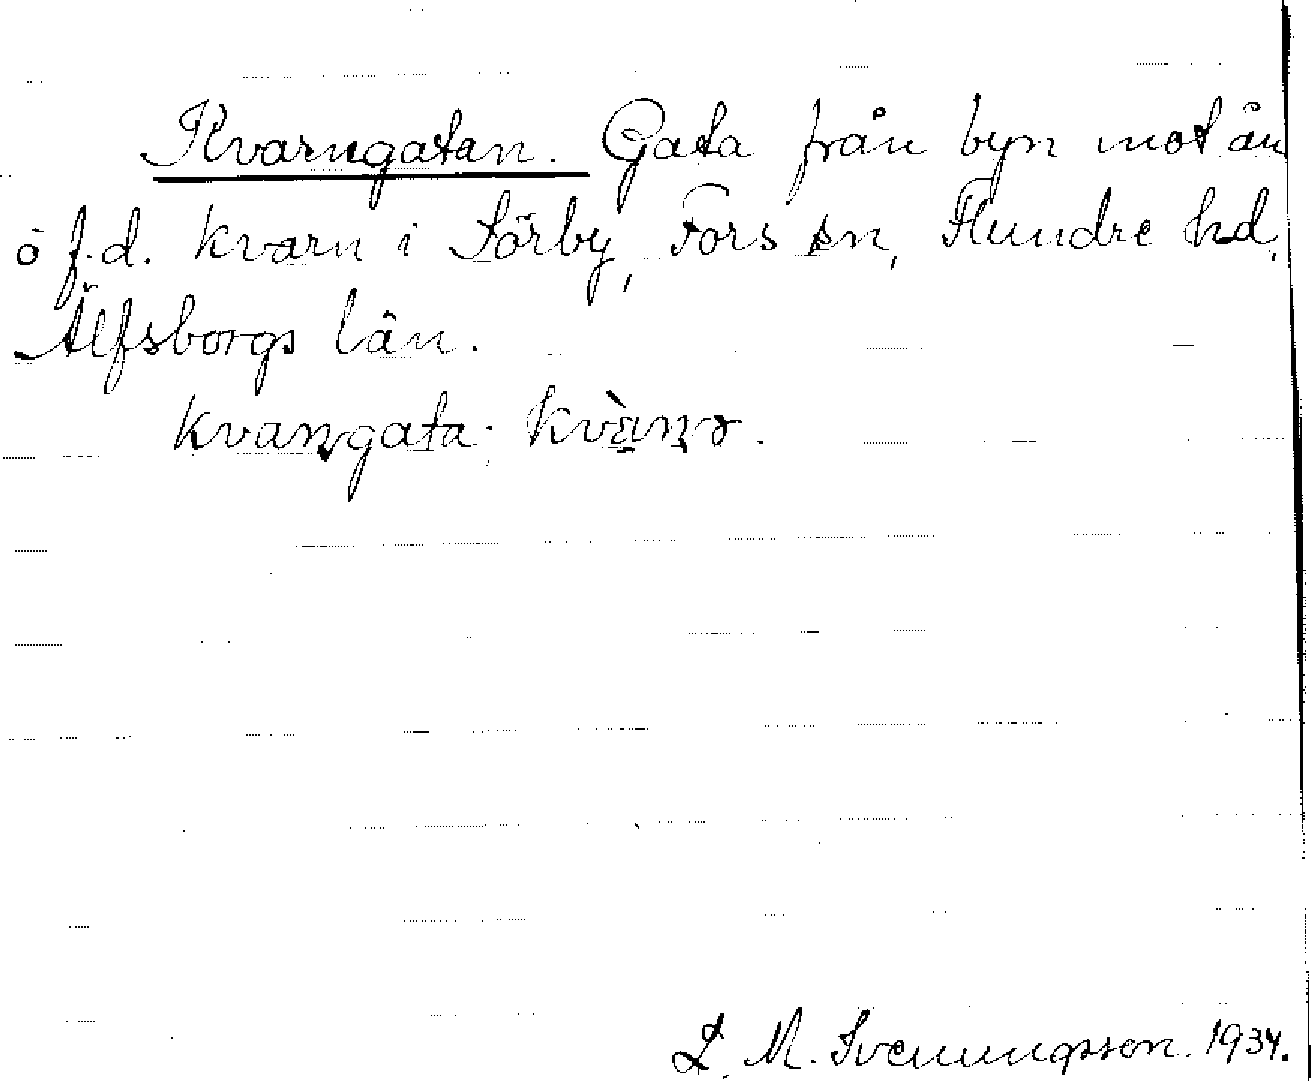 Kvarngatan. Gata från byn mot ån
o f.d. kvarn i Sörby, Fors sn, Flundre hd,
Älfsborgs län.
kvaṉgata; kvàṉɐ.
L. M. Svenungsson. 1934.